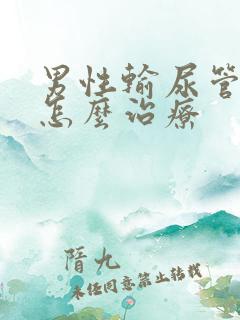 男性輸尿管
怎麼治療
隋九
未经同意禁止转载